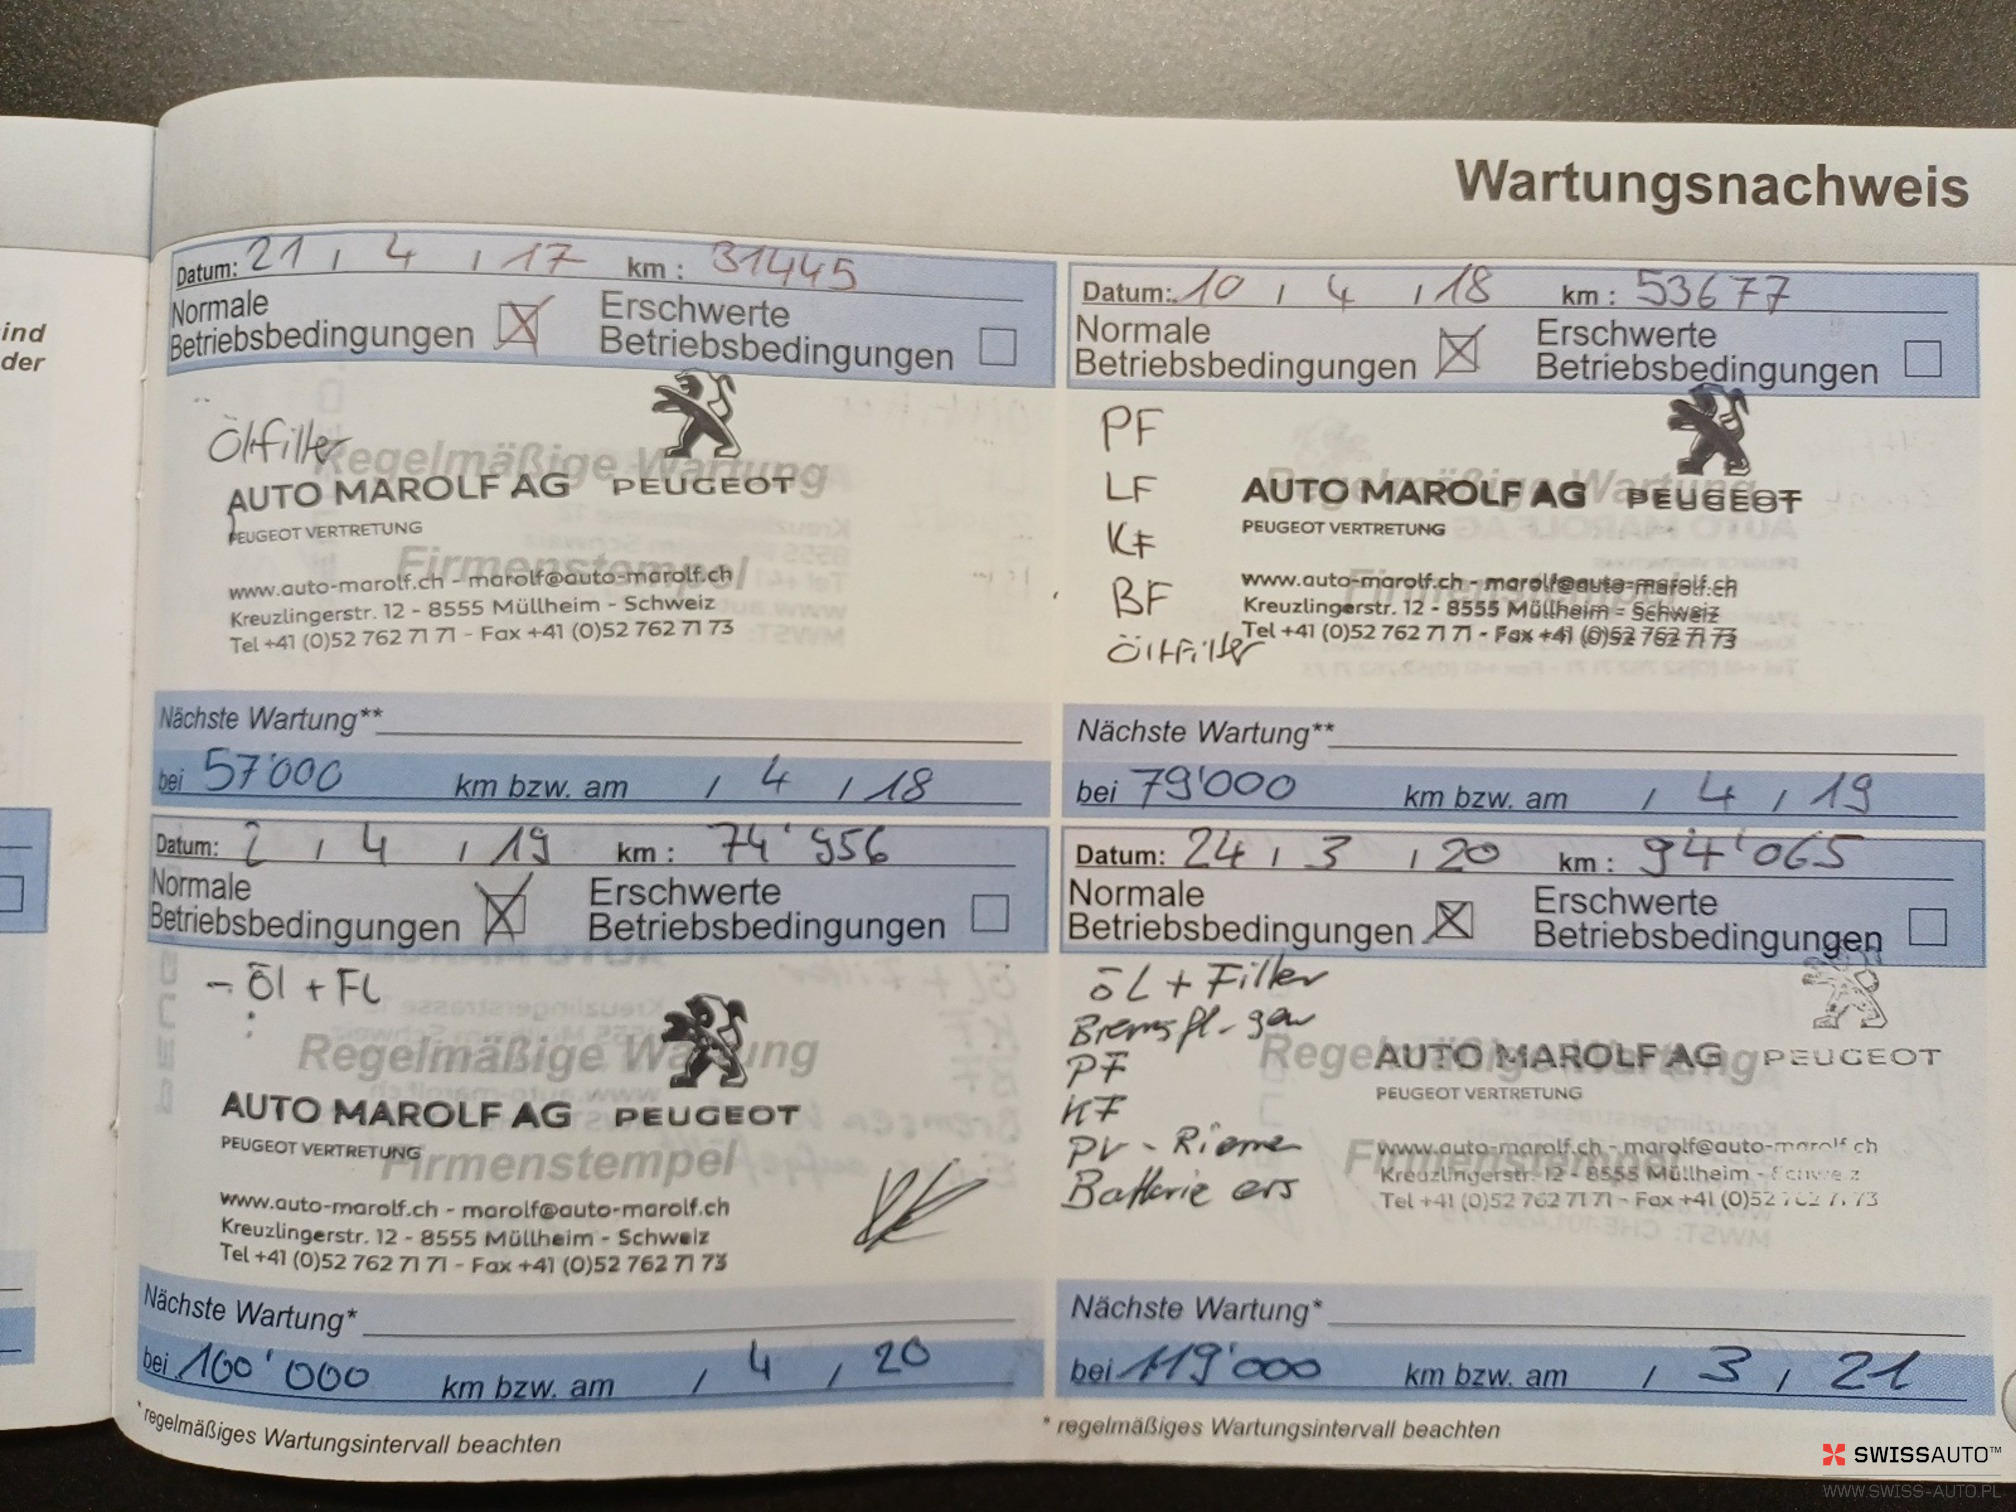 Wartungsnachweis
ind
der
Datum: 21 , 4 , 17 km : 31445
Normale
Betriebsbedingungen
Erschwerte
Betriebsbedingungen
Öl+filter
Regelmäßige Wartung
AUTO MAROLF AG PEUGEOT
PEUGEOT VERTRETUNG
Firmenstempel
www.auto-marolf.ch - marolf@auto-marolf.ch
Kreuzlingerstr. 12 - 8555 Müllheim - Schweiz
Tel +41 (0)52 762 71 71 - Fax +41 (0)52 762 71 73
Nächste Wartung**
bei 57'000 km bzw. am , 4 , 18
Datum: 10 , 4 , 18 km : 53677
Normale
Betriebsbedingungen
Erschwerte
Betriebsbedingungen
PF
LF
KF
BF
Öl+Filter
Regelmäßige Wartung
AUTO MAROLF AG PEUGEOT
PEUGEOT VERTRETUNG
Firmenstempel
www.auto-marolf.ch - marolf@auto-marolf.ch
Kreuzlingerstr. 12 - 8555 Müllheim - Schweiz
Tel +41 (0)52 762 71 71 - Fax +41 (0)52 762 71 73
Nächste Wartung**
bei 79'000 km bzw. am , 4 , 19
Datum: 2 , 4 , 19 km : 74'956
Normale
Betriebsbedingungen
Erschwerte
Betriebsbedingungen
- Öl + FL
Regelmäßige Wartung
AUTO MAROLF AG PEUGEOT
PEUGEOT VERTRETUNG
Firmenstempel
www.auto-marolf.ch - marolf@auto-marolf.ch
Kreuzlingerstr. 12 - 8555 Müllheim - Schweiz
Tel +41 (0)52 762 71 71 - Fax +41 (0)52 762 71 73
Nächste Wartung*
bei 100'000 km bzw. am , 4 , 20
* regelmäßiges Wartungsintervall beachten
Datum: 24 , 3 , 20 km : 94'065
Normale
Betriebsbedingungen
Erschwerte
Betriebsbedingungen
ÖL + Filter
Bremsfl. gew
PF
KF
PV - Riemen
Batterie ers
Regelmäßige Wartung
AUTO MAROLF AG PEUGEOT
PEUGEOT VERTRETUNG
Firmenstempel
www.auto-marolf.ch - marolf@auto-marolf.ch
Kreuzlingerstr. 12 - 8555 Müllheim - Schweiz
Tel +41 (0)52 762 71 71 - Fax +41 (0)52 762 71 73
Nächste Wartung*
bei 119'000 km bzw. am , 3 , 21
* regelmäßiges Wartungsintervall beachten
SWISSAUTO™
WWW.SWISS-AUTO.PL